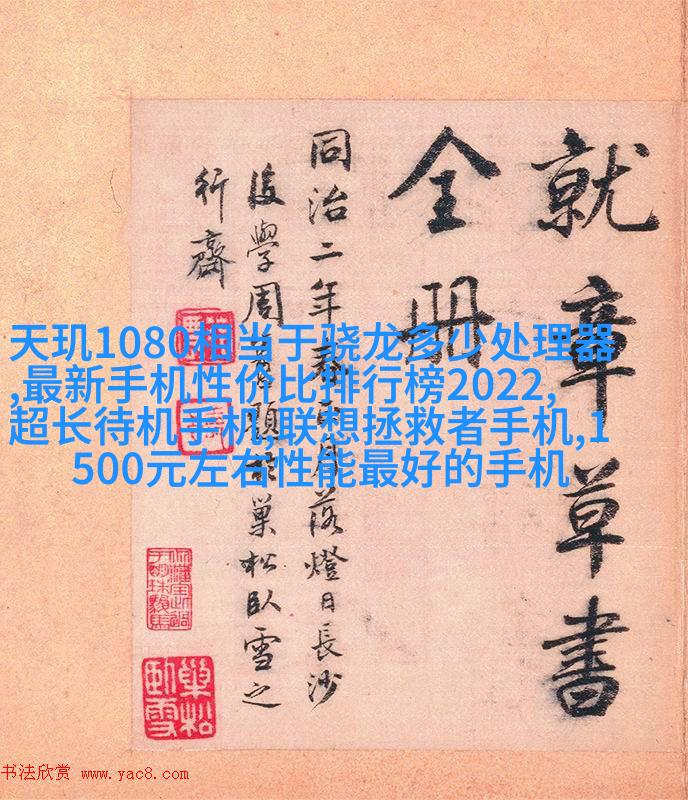 就章草書
全冊
同治二年月落燈日長沙
後學周巢松臥雪之
行齋
天玑1080相当于骁龙多少处理器
,最新手机性价比排行榜2022,
超长待机手机,联想拯救者手机,1
500元左右性能最好的手机
巢松臥雪
书法欣赏 www.yac8.com